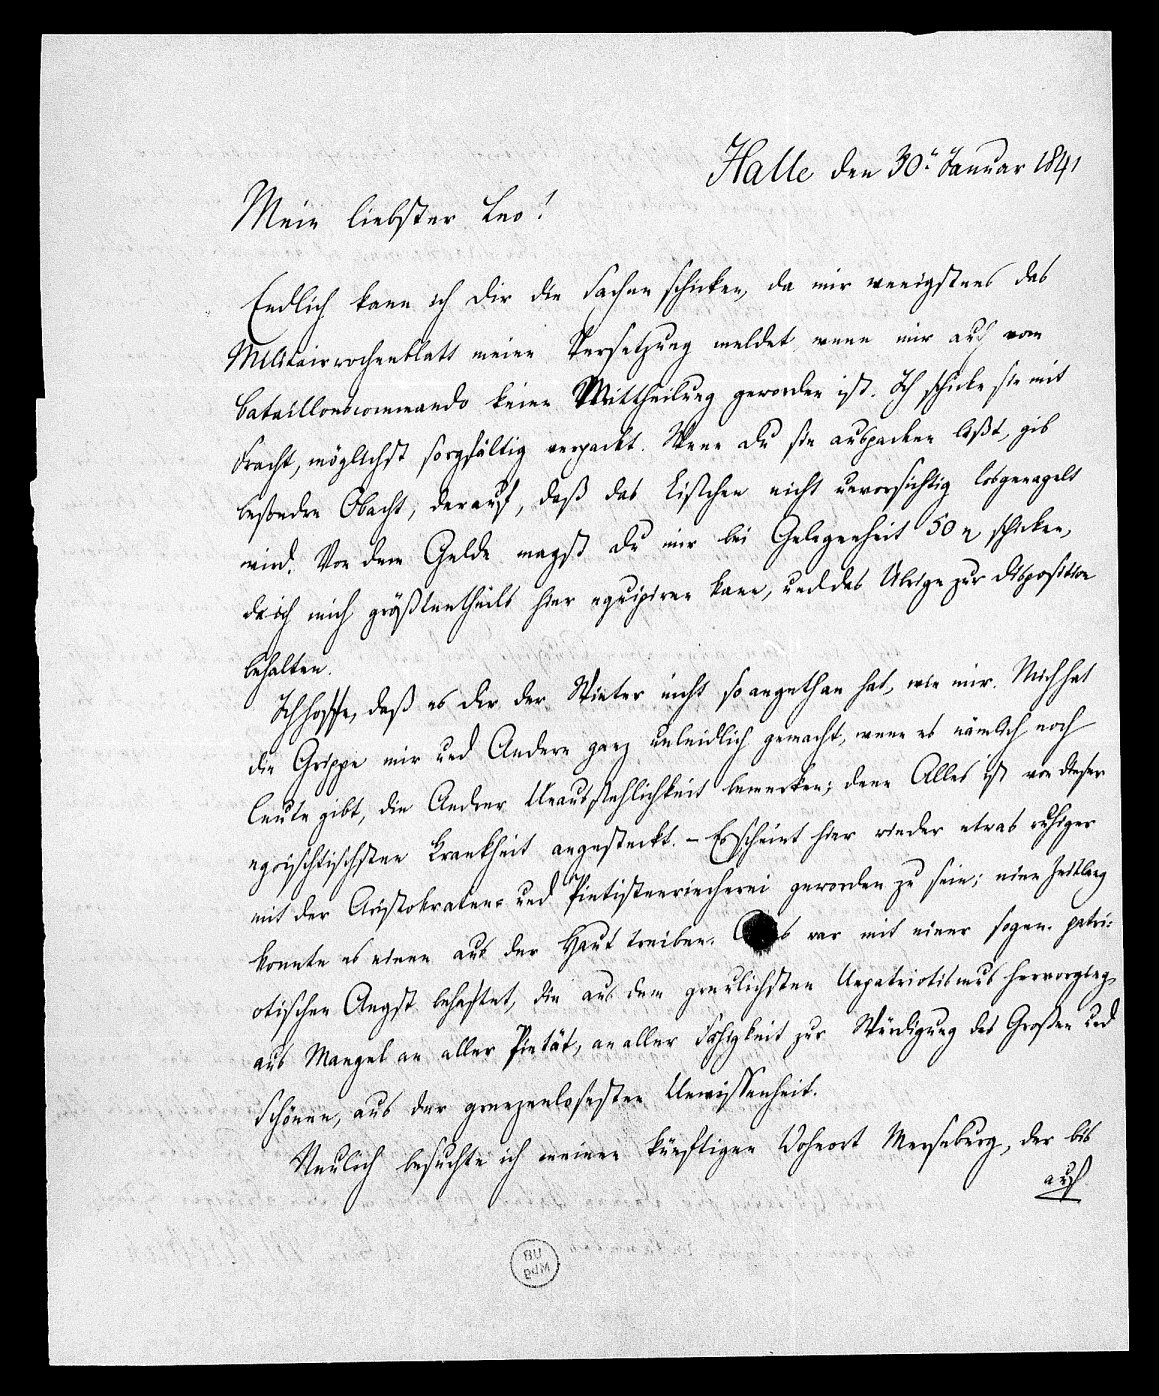 Halle den 30n Januar 1841
Mein liebster Leo!
Endlich kann ich Dir die Sachen schicken, da mir wenigstens das
Militairwochenblatt meine Versetzung meldet wenn mir auch vom
Bataillonscommando keine Mittheilung geworden ist. Ich schicke sie mit
Fracht, möglichst sorgfältig verpackt. Wenn Du sie auspacken läßt, gib
besondre Obacht, darauf, daß das Kistchen nicht unvorsichtig losgenagelt
wird. Von dem Gelde magst Du mir bei Gelegenheit 50 schicken,
da ich mich größtentheils hier equipiren kann, und das Übrige zur Disposition
behalten.
Ich hoffe, daß es Dir der Winter nicht so angethan hat, wie mir. Mich hat
die Grippe mir und Andern ganz unleidlich gemacht, wenn es nämlich noch
Leute gibt, die Andrer Unausstehlichkeit bemerken; denn Alles ist von dieser
egoischtischsten Krankheit angesteckt. – Es scheint hier wieder etwas ruhiger
mit der Aristokraten- und Pietistenriecherei geworden zu sein; eine Zeitlang
konnte es einen aus der Haut treiben. war mit einer sogen. patri-
otischen Angst behaftet, die aus dem greulichsten Unpatriotismus hervorging,
aus Mangel an aller Pietät, an aller Fähigkeit zur Würdigung des Großen und
Schönen, aus der grenzenlosesten Unwissenheit.
Neulich besuchte ich meinen künftigen Wohnort Merseburg, der bis
auf
UB
Mbg